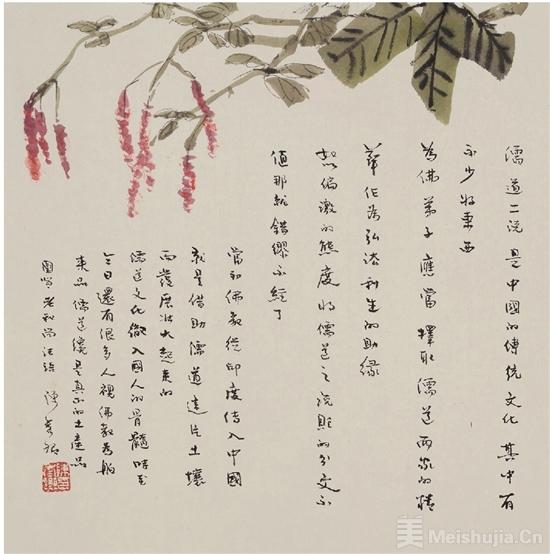 儒道二说是中國的傳统文化其中有
不少好东西
為佛弟子應當擇取儒道两家的精
華作為弘法利生的助缘
如偏激的態度将儒道之说贬的分文不
值那就错缪不经了
當初佛教從印度傳入中國
就是借助儒道這片土壤
而發展壮大起来的
儒道文化徹入國人的骨髓時至
今日還有很多人視佛教為舶
来品儒道纔是真正的土產品
老和尚法语
美 Meishujia.Cn